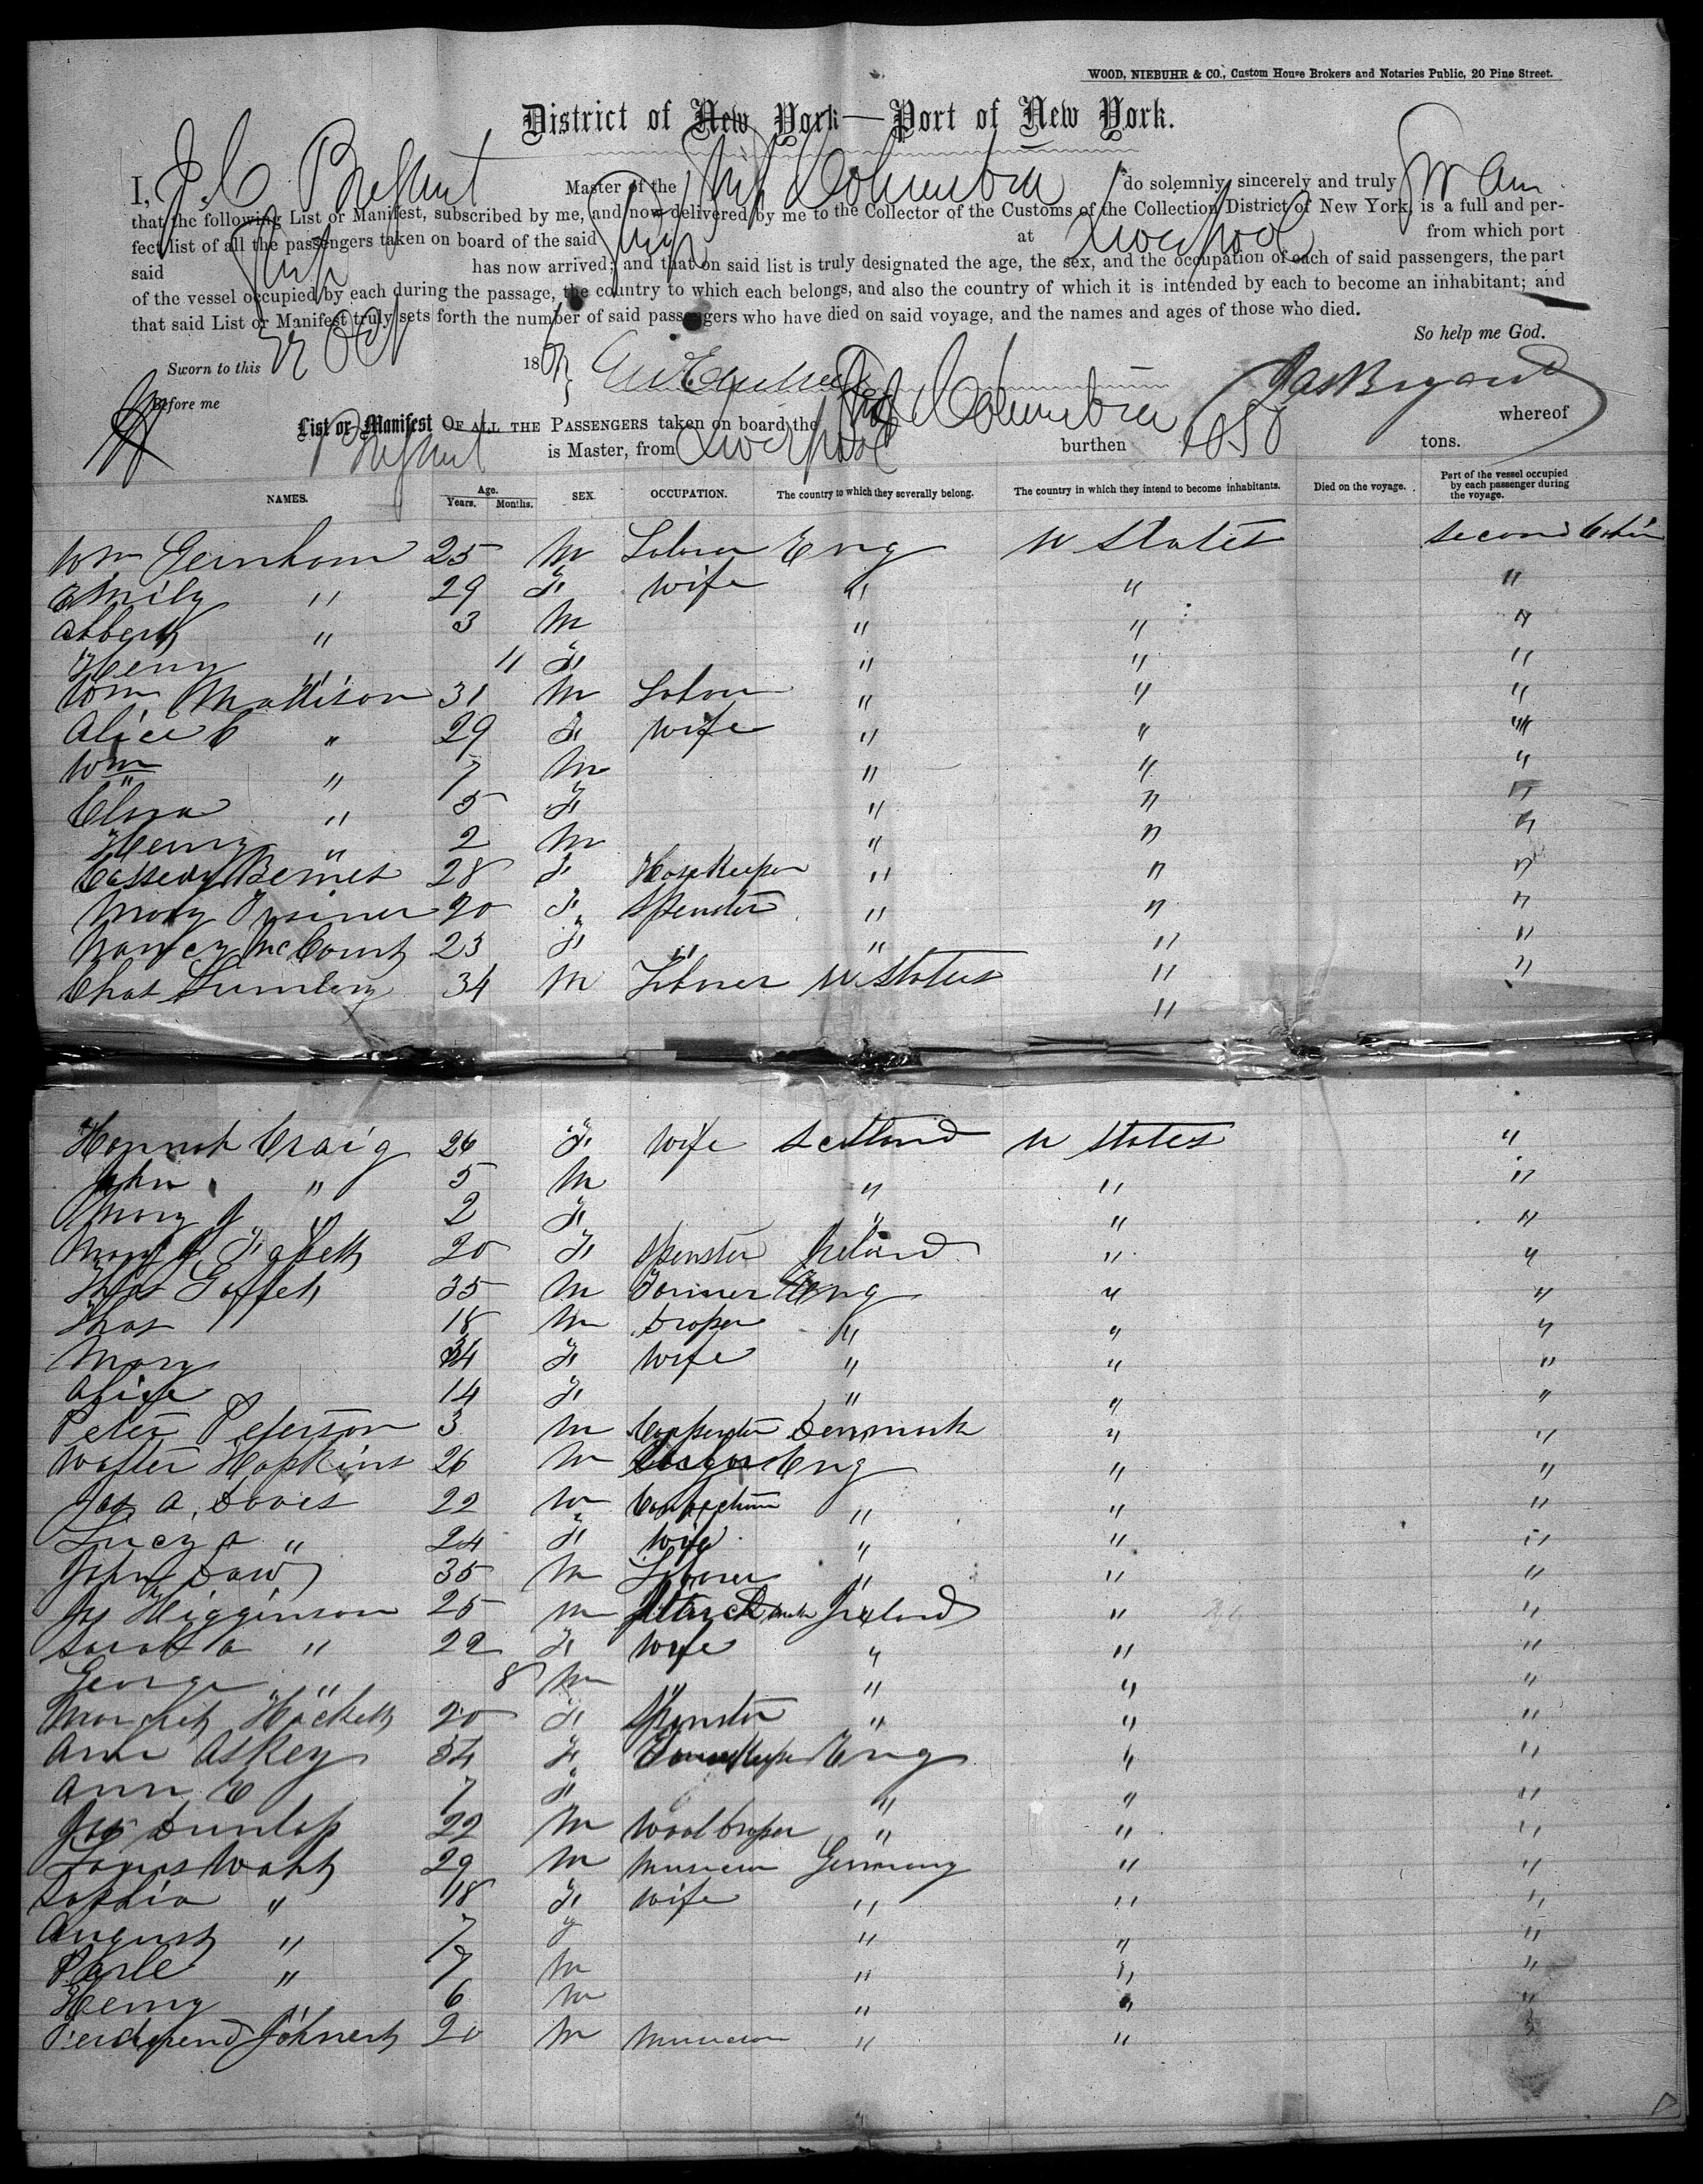 WOOD, NIEBUHR & CO., Custom House Brokers and Notaries Public, 20 Pine Street.
District of New York—Port of New York.
I, J. C. Bryant Master of the Ship Columbia do solemnly, sincerely and truly swear
that the following List or Manifest, subscribed by me, and now delivered by me to the Collector of the Customs of the Collection District of New York, is a full and per-
fect list of all the passengers taken on board of the said Ship at Liverpool from which port
said Ship has now arrived; and that on said list is truly designated the age, the sex, and the occupation of each of said passengers, the part
of the vessel occupied by each during the passage, the country to which each belongs, and also the country of which it is intended by each to become an inhabitant; and
that said List or Manifest truly sets forth the number of said passengers who have died on said voyage, and the names and ages of those who died.
So help me God.
Sworn to this 22 Oct 186
Jas Bryant
Before me
List or Manifest OF ALL THE PASSENGERS taken on board the Ship Columbia whereof
Bryant is Master, from Liverpool burthen 1050 tons.
NAMES. Age. Years. Months. SEX. OCCUPATION. The country to which they severally belong. The country in which they intend to become inhabitants. Died on the voyage. Part of the vessel occupied by each passenger during the voyage.
Wm Gernham 25 M Labour Eng U States second Cabin
Emily " 29 F wife " " "
Albert " 3 M " " "
Henry " 11 F " " "
Wm Mattison 31 M Labour " " "
Alice C " 29 F wife " " "
Wm " 7 M " " "
Clara " 5 F " " "
Henry " 2 M " " "
28 F HoseKeeper " " "
Mary 20 F Spenster " " "
Nancy McCourt 23 F " " " "
Chas Lumley 34 M Labner U States " "
"
Hannah Craig 26 F wife Scotland U States "
John " 5 M " " "
Mary J " 2 F " " "
Mary J 20 F Spenster Ireland " "
Thos Goffet 35 M Farmer Eng " "
Thos 18 M Draper " " "
Mary 34 F wife " " "
Alice 14 F " " "
Peter Peterson 3 M Carpenter Denmark " "
Walter Hopkins 26 M Eng " "
Jas A. Daves 22 M " " "
Lucy a " 24 F wife " " "
John Daw 35 M Labner " " "
Jas Higginson 25 M Ireland " "
Sarah a " 22 F wife " " "
George " 8 M " " "
Margret Hackett 20 F Spenster " " "
Ann Askey 34 F Eng " "
Ann E 7 F " " "
Jas Dunlop 22 M Wool Draper " " "
29 M musician Germany " "
Sophia " 18 F wife " " "
August " 7 " " "
" 7 M " " "
Henry " 6 M " " "
Johnert 20 M musician " "